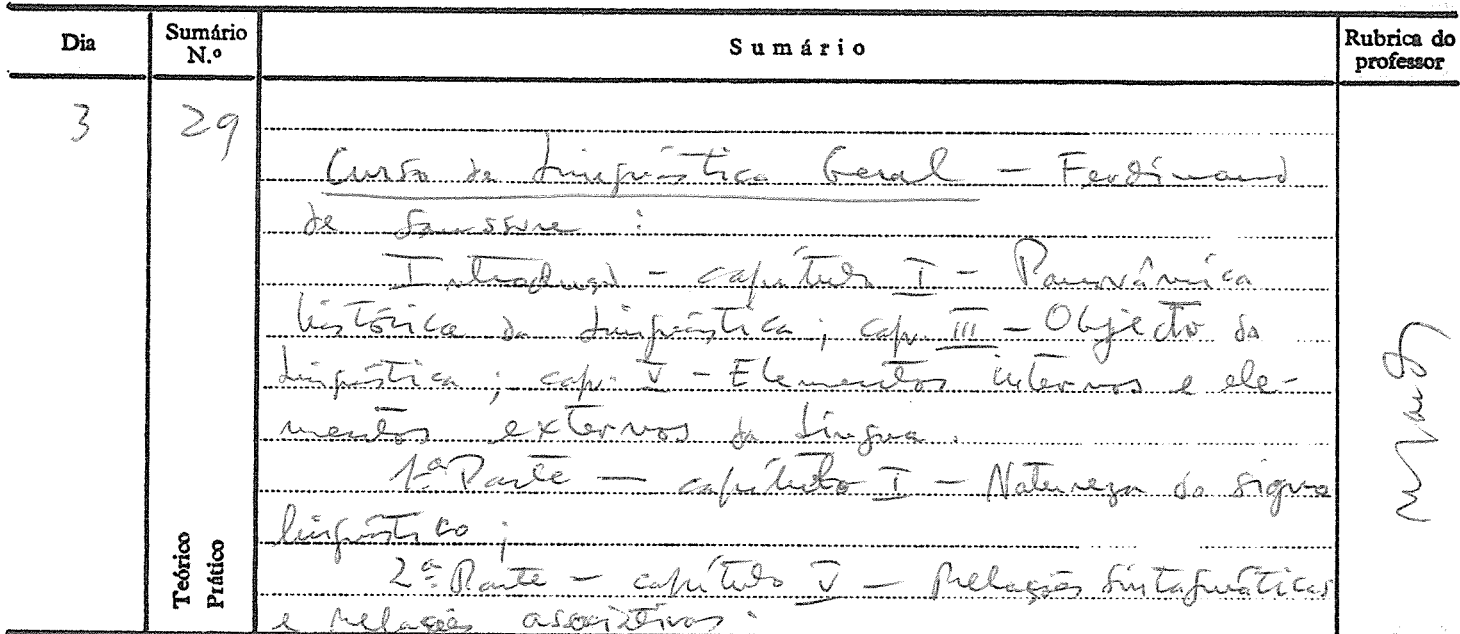 Dia
Sumário N.º
Sumário
Rubrica do professor
3
29
Curso de Linguística Geral - Ferdinand
de Saussure :
Introdução - capítulo I - Panorâmica
histórica da Linguística ; cap. III - Objecto da
Linguística ; cap. V - Elementos internos e ele-
mentos externos da Língua.
1ª Parte - capítulo I - Natureza do signo
linguístico ;
2ª Parte - capítulo V - Relações sintagmáticas
e relações associativas.
Teórico
Prático